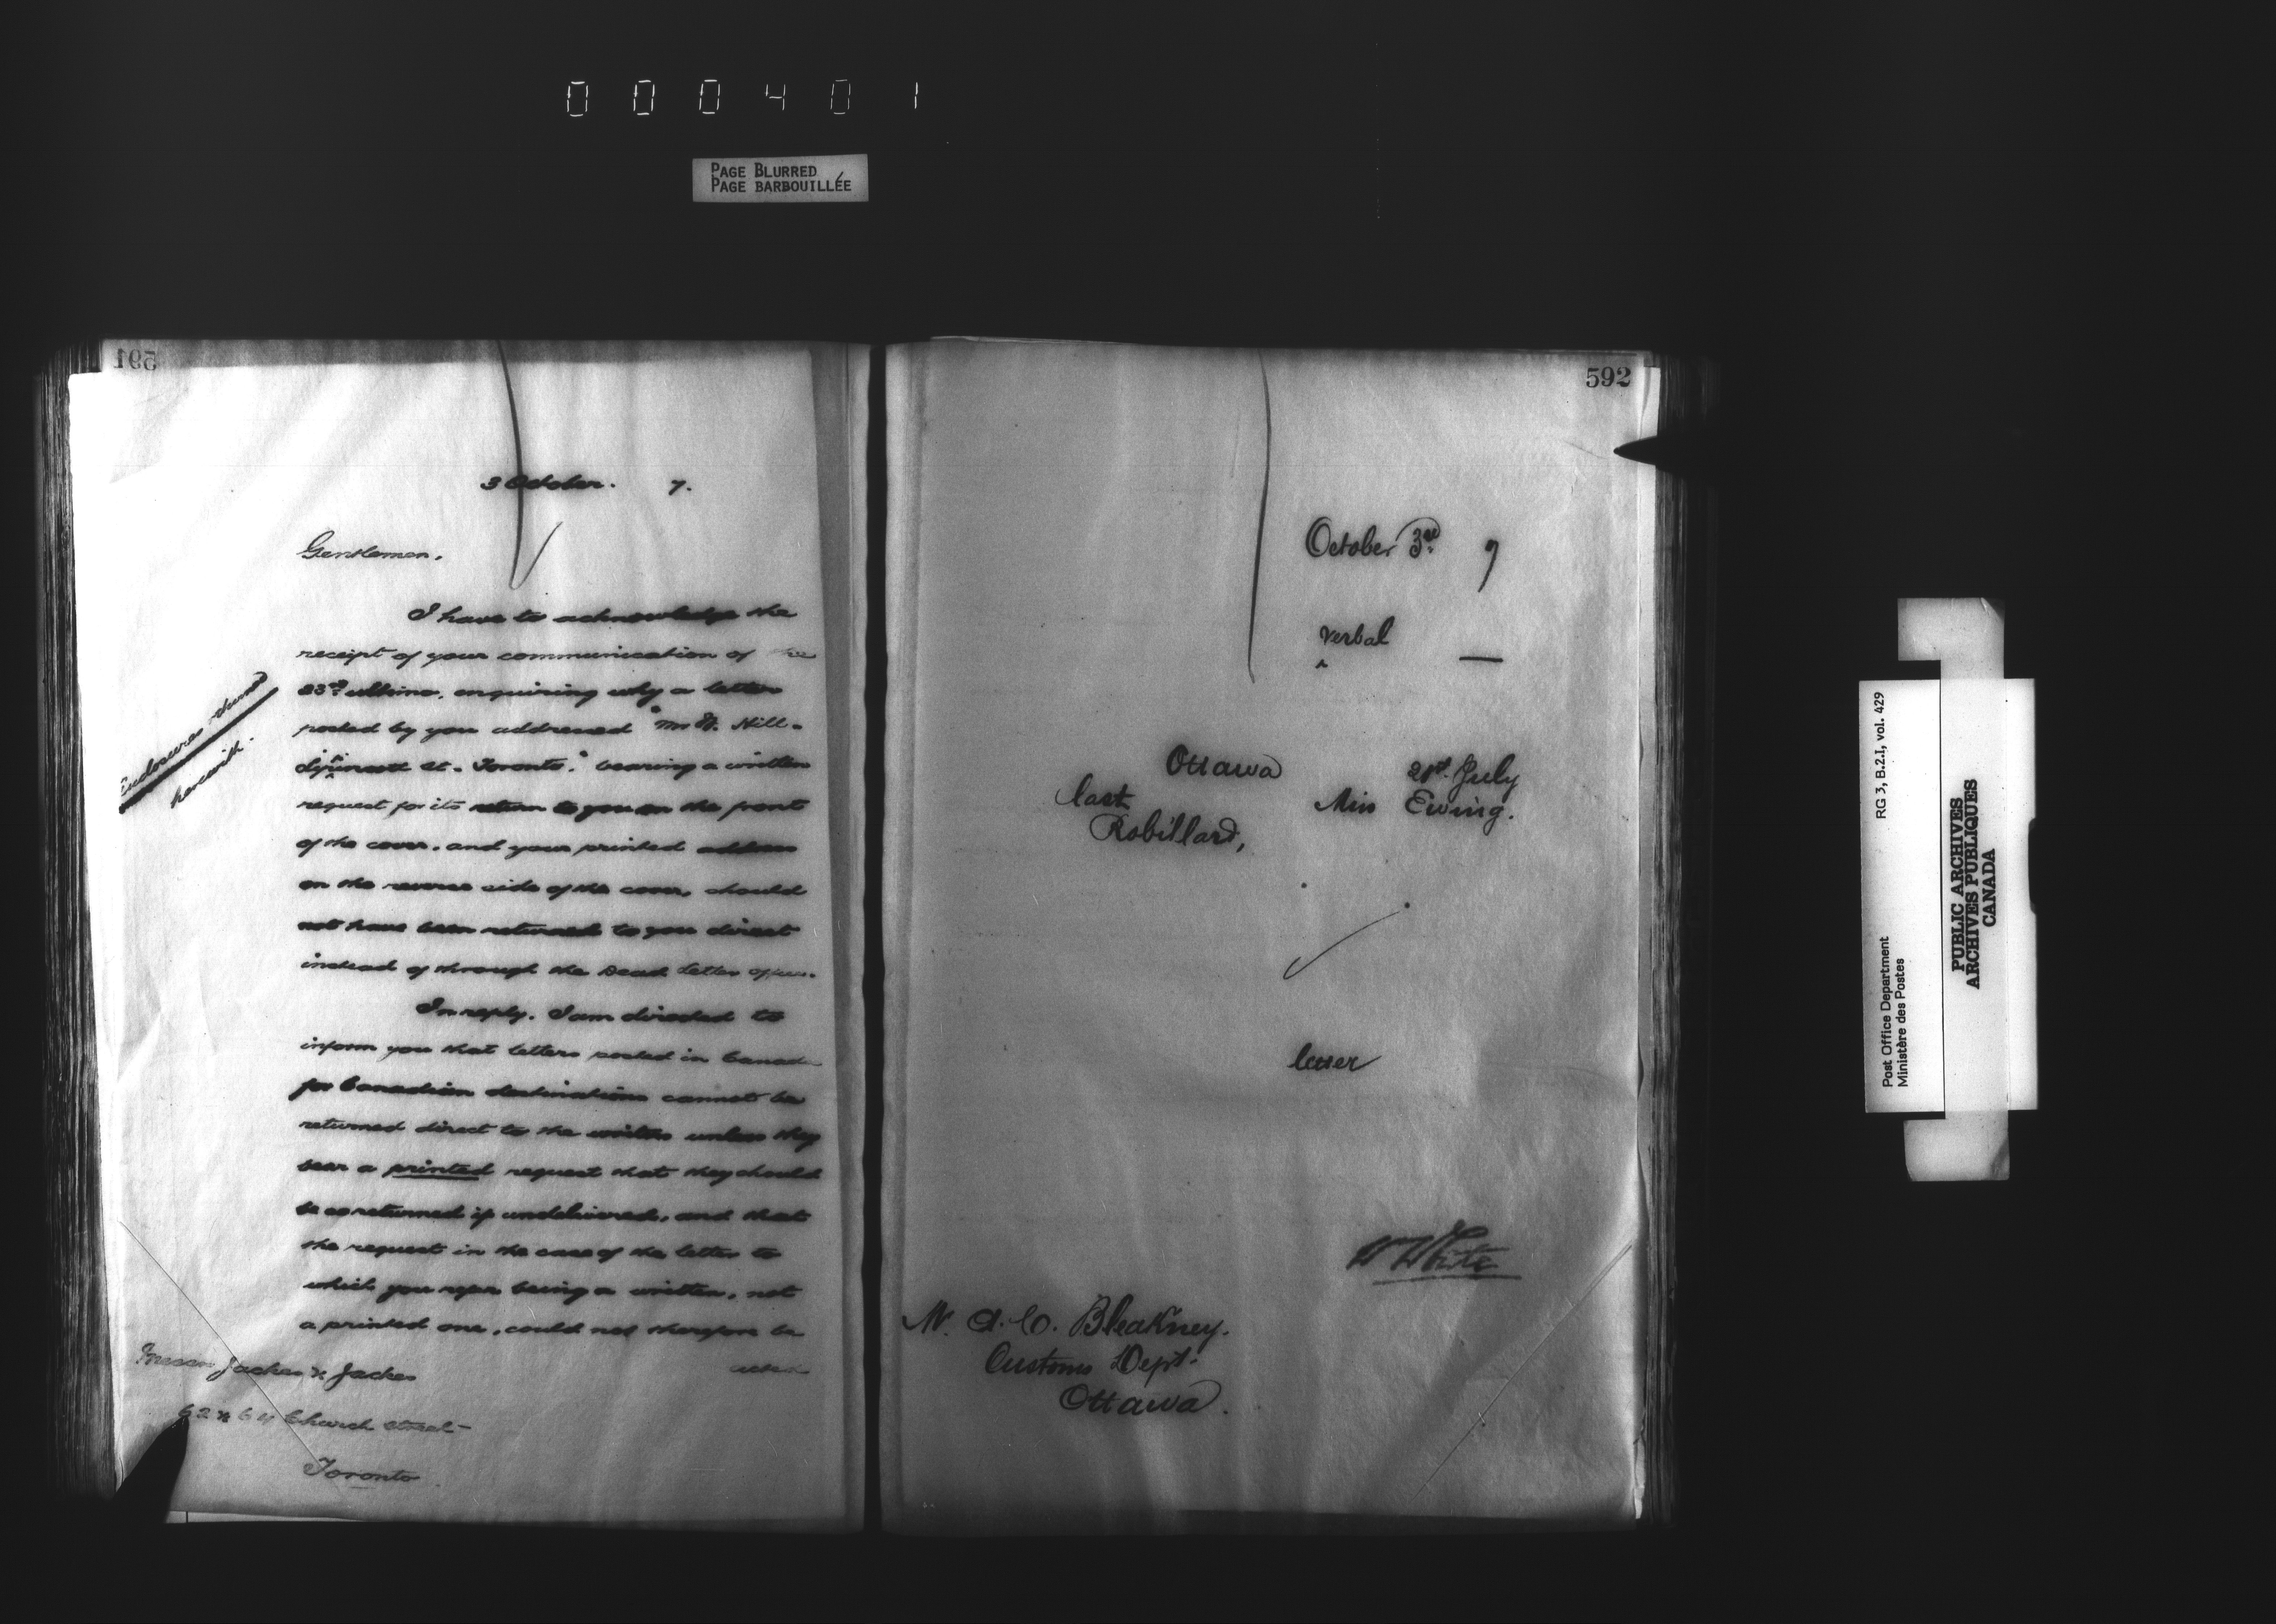 000401
PAGE BLURRED
PAGE BARBOUILLÉE
591
3 October. 7.
Gentlemen,
I have to acknowledge the
receipt of your communication of the
23rd ultimo, enquiring why a letter
posted by you addressed "Mr W. Hill-
St. Toronto," bearing a written
request for its return to you on the front
of the cover, and your printed address
on the reverse side of the cover, should
not have been returned to you direct
instead of through the Dead Letter Office.
In reply, I am directed to
inform you that letters posted in Canada
for Canadian destinations cannot be
returned direct to the writers unless they
bear a printed request that they should
be so returned if undelivered, and that
the request in the case of the letter to
which you refer being a written, not
a printed one, could not therefore be
acted
Enclosures returned
herewith.
Messrs Jackes & Jackes
62 & 64 Church Street
Toronto
592
October 3rd 7
verbal —
Ottawa 21st July
last Miss Ewing.
Robillard,
letter
W White
Mr. A. C. Bleakney.
Customs Dept.
Ottawa.
RG 3, B.2.I, vol. 429
Post Office Department
Ministère des Postes
PUBLIC ARCHIVES
ARCHIVES PUBLIQUES
CANADA